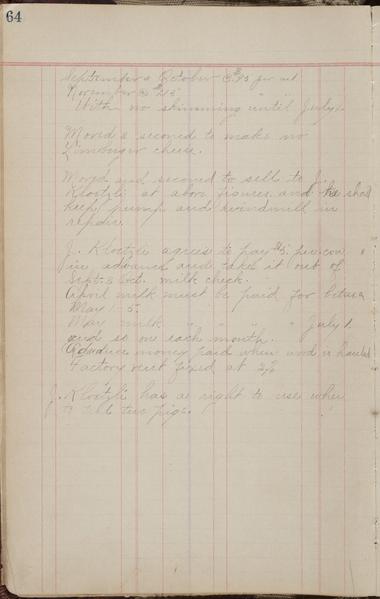 64
September & October per cwt
November
With no skimming until July 1.
Moved & second to make no
Limburger cheese.
Moved and seconed to sell to J.
Kloetzli at abov figures and he shall
keep pump and windmill in
repair.
J. Kloetzli agrees to pay $5. per cow
in advance and take it out of
Sept. & Oct. milk check.
April milk must be paid for betwen
May 1-5.
May milk " " " " July 1.
and so on each month.
money paid when wood is hauled
Factory rent fixed at
J. Kloetzli has a right to use whey
pigs.